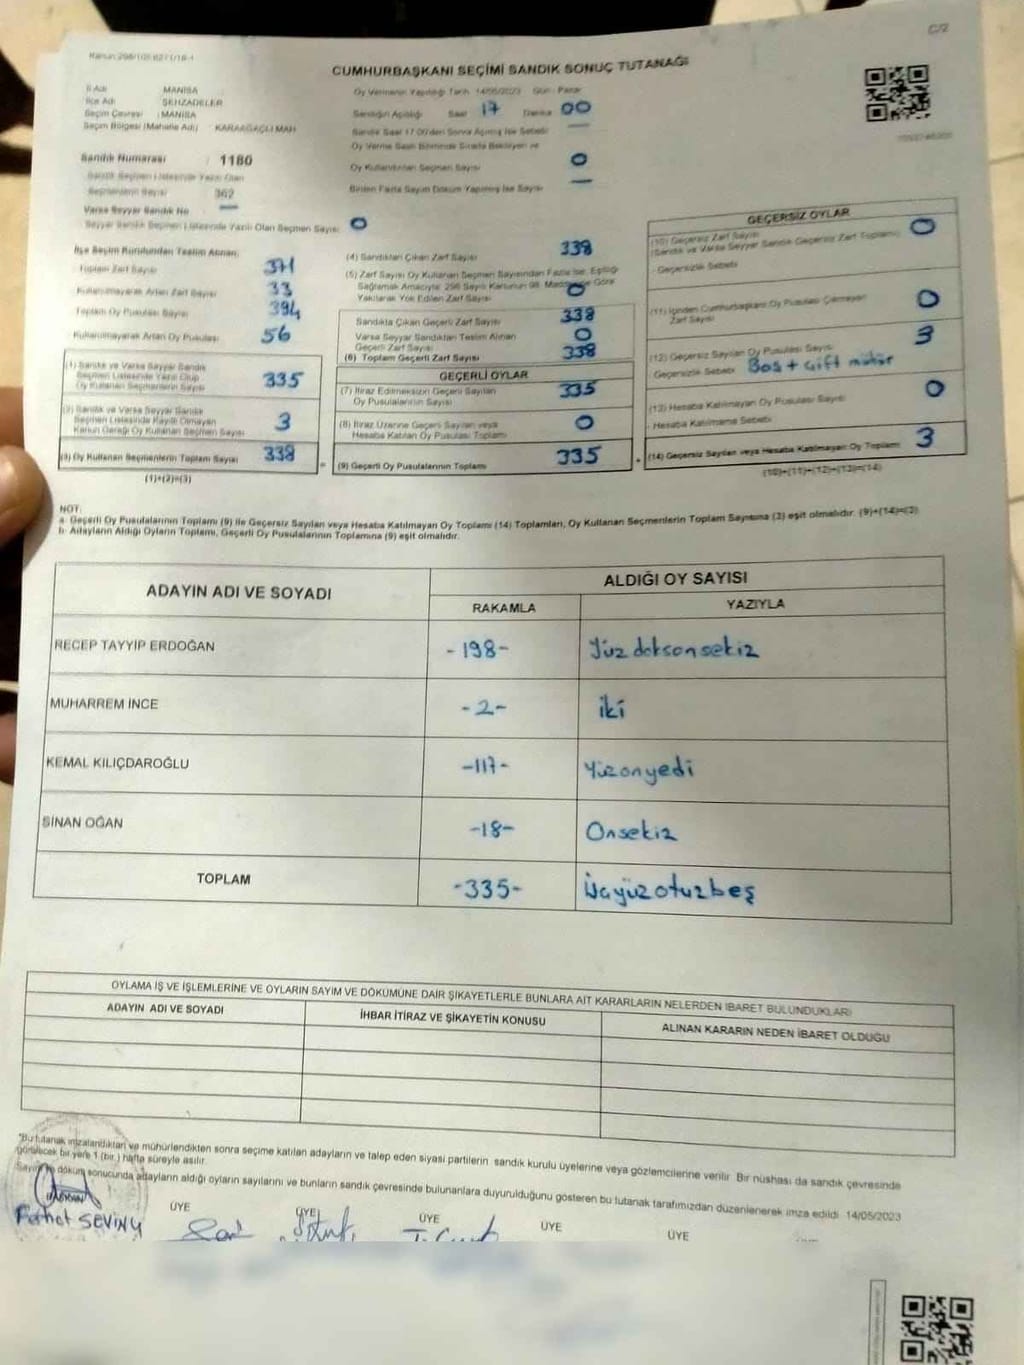 C/2
CUMHURBAŞKANI SEÇİMİ SANDIK SONUÇ TUTANAĞI
İl Adı MANİSA
İlçe Adı ŞEHZADELER
Seçim Çevresi : MANİSA
Seçim Bölgesi (Mahalle Adı) KARAAĞAÇLI MAH
Sandık Numarası : 1180
Sandık Seçmen Listesinde Yazılı Olan
Seçmenlerin Sayısı 362
Varsa Seyyar Sandık No —
Seyyar Sandık Seçmen Listesinde Yazılı Olan Seçmen Sayısı 0
Oy Vermenin Yapıldığı Tarih 14/05/2023 Gün : Pazar
Sandığın Açıldığı Saat 17 Dakika 00
Sandık Saat 17.00'den Sonra Açılmış İse Sebebi —
Oy Verme Saati Bitiminde Sırada Bekleyen ve
Oy Kullandırılan Seçmen Sayısı 0
Birden Fazla Sayım Döküm Yapılmış İse Sayısı —
İlçe Seçim Kurulundan Teslim Alınan;
Toplam Zarf Sayısı 371
Kullanılmayarak Artan Zarf Sayısı 33
Toplam Oy Pusulası Sayısı 394
Kullanılmayarak Artan Oy Pusulası 56
(1) Sandık ve Varsa Seyyar Sandık
Seçmen Listesinde Yazılı Olup
Oy Kullanan Seçmenlerin Sayısı 335
(2) Sandık ve Varsa Seyyar Sandık
Seçmen Listesinde Kayıtlı Olmayan
Kanun Gereği Oy Kullanan Seçmen Sayısı 3
(3) Oy Kullanan Seçmenlerin Toplam Sayısı 338
(1)+(2)=(3)
(4) Sandıktan Çıkan Zarf Sayısı 338
(5) Zarf Sayısı Oy Kullanan Seçmen Sayısından Fazla İse, Eşitliği
Sağlamak Amacıyla; 298 Sayılı Kanunun 98. Maddesine Göre
Yakılarak Yok Edilen Zarf Sayısı 0
Sandıkta Çıkan Geçerli Zarf Sayısı 338
Varsa Seyyar Sandıktan Teslim Alınan
Geçerli Zarf Sayısı 0
(6) Toplam Geçerli Zarf Sayısı 338
GEÇERLİ OYLAR
(7) İtiraz Edilmeksizin Geçerli Sayılan
Oy Pusulalarının Sayısı 335
(8) İtiraz Üzerine Geçerli Sayılan veya
Hesaba Katılan Oy Pusulası Toplamı 0
= (9) Geçerli Oy Pusulalarının Toplamı 335
GEÇERSİZ OYLAR
(10) Geçersiz Zarf Sayısı 0
(Sandık ve Varsa Seyyar Sandık Geçersiz Zarf Toplamı)
Geçersizlik Sebebi
(11) İçinden Cumhurbaşkanı Oy Pusulası Çıkmayan
Zarf Sayısı 0
(12) Geçersiz Sayılan Oy Pusulası Sayısı 3
Geçersizlik Sebebi Boş + Çift mühür
(13) Hesaba Katılmayan Oy Pusulası Sayısı 0
Hesaba Katılmama Sebebi
+ (14) Geçersiz Sayılan veya Hesaba Katılmayan Oy Toplamı 3
(10)+(11)+(12)+(13)=(14)
NOT:
a- Geçerli Oy Pusulalarının Toplamı (9) ile Geçersiz Sayılan veya Hesaba Katılmayan Oy Toplamı (14) Toplamları, Oy Kullanan Seçmenlerin Toplam Sayısına (3) eşit olmalıdır. (9)+(14)=(3)
b- Adayların Aldığı Oyların Toplamı, Geçerli Oy Pusulalarının Toplamına (9) eşit olmalıdır.
ADAYIN ADI VE SOYADI ALDIĞI OY SAYISI
RAKAMLA YAZIYLA
RECEP TAYYİP ERDOĞAN -198- Yüz doksonsekiz
MUHARREM İNCE -2- iki
KEMAL KILIÇDAROĞLU -117- Yüzonyedi
SİNAN OĞAN -18- Onsekiz
TOPLAM -335- Üçyüzotuzbeş
OYLAMA İŞ VE İŞLEMLERİNE VE OYLARIN SAYIM VE DÖKÜMÜNE DAİR ŞİKAYETLERLE BUNLARA AİT KARARLARIN NELERDEN İBARET BULUNDUKLARI
ADAYIN ADI VE SOYADI İHBAR İTİRAZ VE ŞİKAYETİN KONUSU ALINAN KARARIN NEDEN İBARET OLDUĞU
"Bu tutanak imzalandıktan ve mühürlendikten sonra seçime katılan adayların ve talep eden siyasi partilerin sandık kurulu üyelerine veya gözlemcilerine verilir. Bir nüshası da sandık çevresinde
görülecek bir yere 1 (bir) hafta süreyle asılır.
Sayım ve döküm sonucunda adayların aldığı oyların sayılarını ve bunların sandık çevresinde bulunanlara duyurulduğunu gösteren bu tutanak tarafımızdan düzenlenerek imza edildi. 14/05/2023
Ferhat SEVİNÇ
ÜYE ÜYE ÜYE ÜYE ÜYE